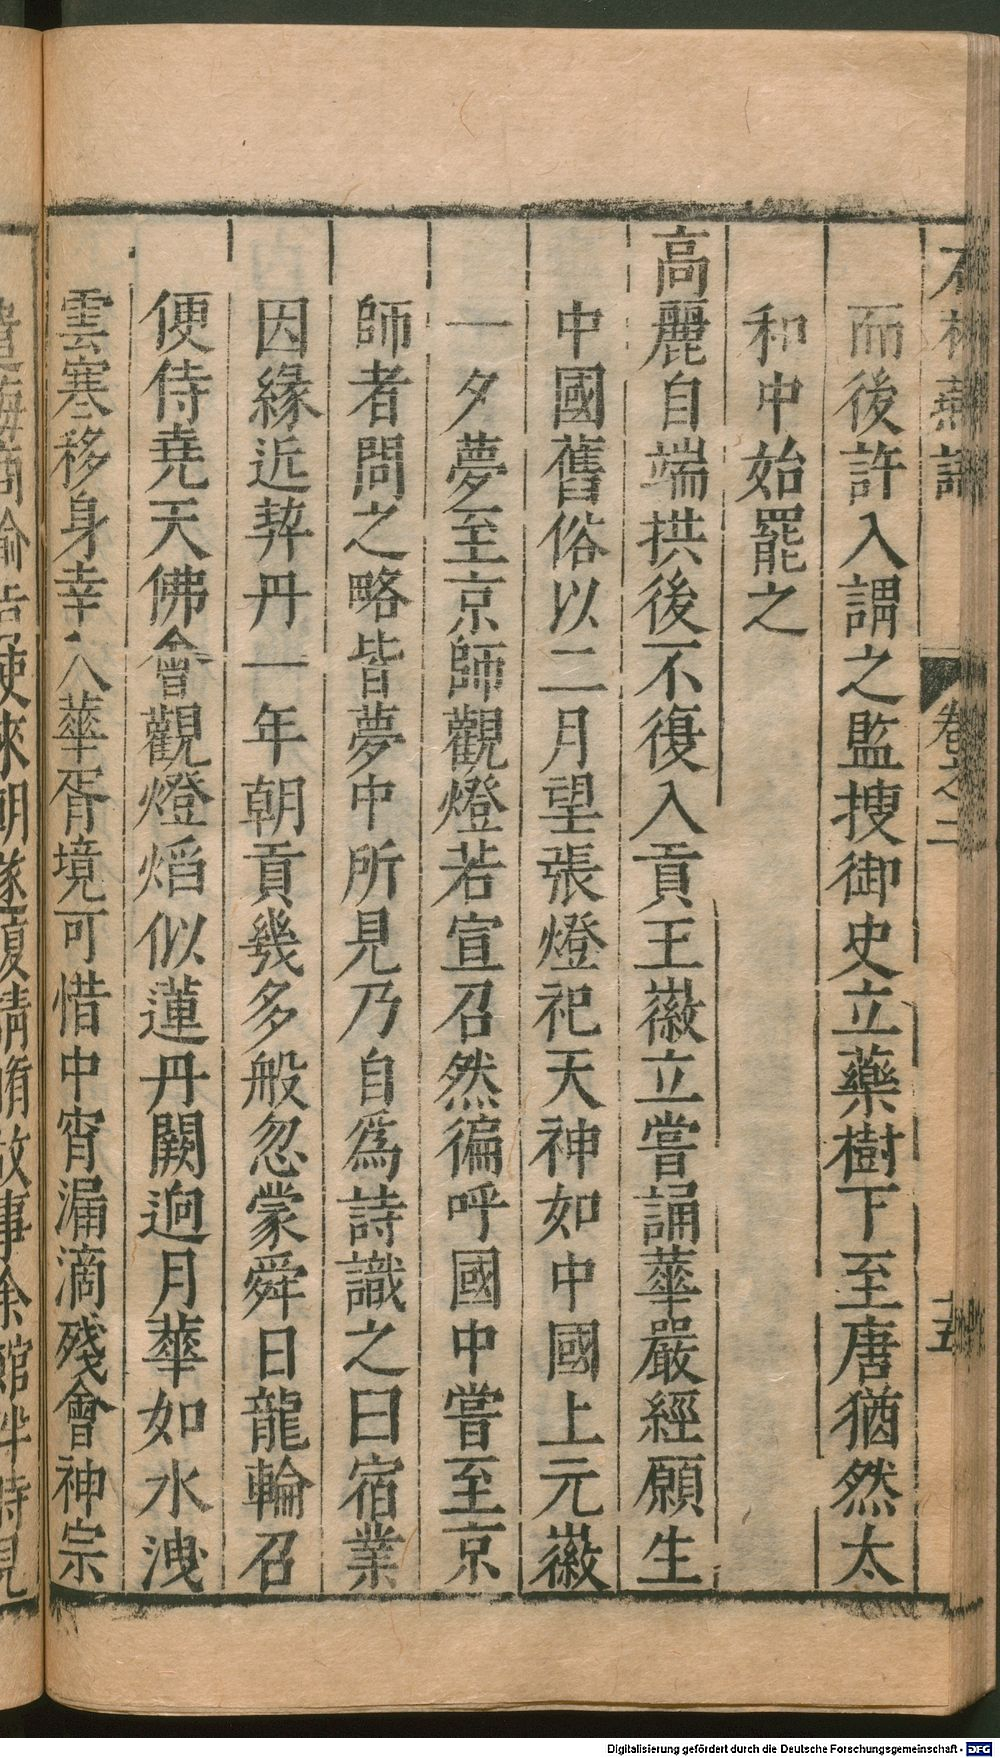 石林燕語
卷之二
十五
而後許入謂之監搜御史立藥樹下至唐猶然太
和中始罷之
高麗自端拱後不復入貢王徽立嘗誦華嚴經願生
中國舊俗以二月望張燈祀天神如中國上元徽
一夕夢至京師觀燈若宣召然徧呼國中嘗至京
師者問之略皆夢中所見乃自爲詩識之曰宿業
因緣近契丹一年朝貢幾多般忽蒙舜日龍輪召
便侍堯天佛會觀燈熖似蓮丹闕逈月華如水洩
雲寒移身幸入華胥境可惜中宵漏滴殘會神宗
遣海商諭旨使來朝遂復請脩故事余館伴時見
Digitalisierung gefördert durch die Deutsche Forschungsgemeinschaft - DFG